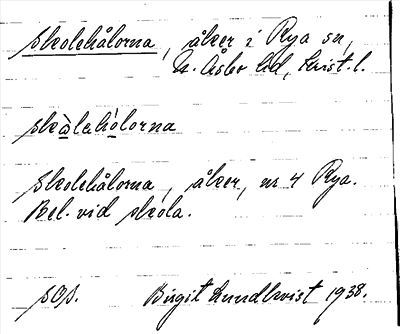 Skolehålorna, åker i Rya sn,
N. Åsbo hd, Krist. l.
skòlehólorna
Skolehålorna, åker, nr 4 Rya.
Bel. vid skola.
sOs. Birgit Lundkvist 1938.